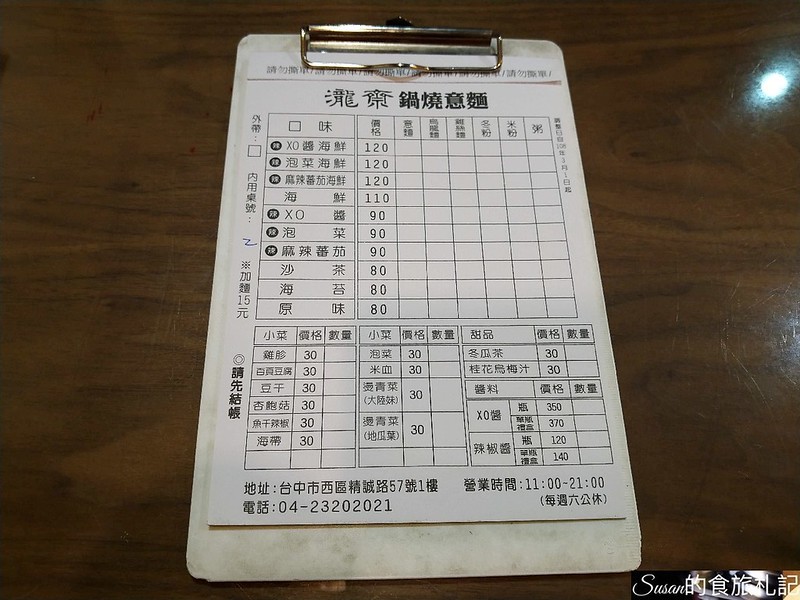 請勿撕單/請勿撕單/請勿撕單/請勿撕單/請勿撕單/請勿撕單/
瀧齋 鍋燒意麵
外帶:□ 內用桌號: 2 ※加麵15元
◎請先結帳
調整日自108年3月1日起
口味 價格 意麵 烏龍麵 雞絲麵 冬粉 米粉 粥
辣 XO醬海鮮 120
辣 泡菜海鮮 120
辣 麻辣蕃茄海鮮 120
海鮮 110
辣 XO醬 90
辣 泡菜 90
辣 麻辣蕃茄 90
沙茶 80
海苔 80
原味 80
小菜 價格 數量
雞胗 30
百頁豆腐 30
豆干 30
杏鮑菇 30
魚干辣椒 30
海帶 30
小菜 價格 數量
泡菜 30
米血 30
燙青菜(大陸妹) 30
燙青菜(地瓜葉) 30
甜品 價格 數量
冬瓜茶 30
桂花烏梅汁 30
醬料 價格 數量
XO醬 瓶 350
單瓶禮盒 370
辣椒醬 瓶 120
單瓶禮盒 140
地址:台中市西區精誠路57號1樓 營業時間:11:00-21:00
電話:04-23202021 (每週六公休)
Susan的食旅札記